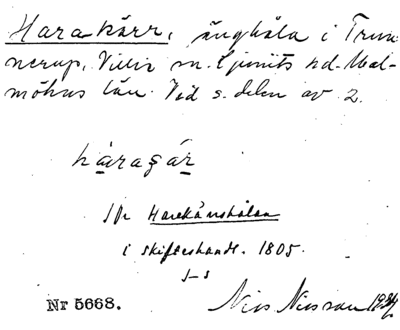 Harakärr, änghåla i Trun-
nerup, Villie sn. Ljunits hd. Mal-
möhus län. Vid s. delen av 2.
håragár
Jfr Harekärrshålan
i skifteshandl. 1805.
J-s
Nr 5668. Nils Nilsson